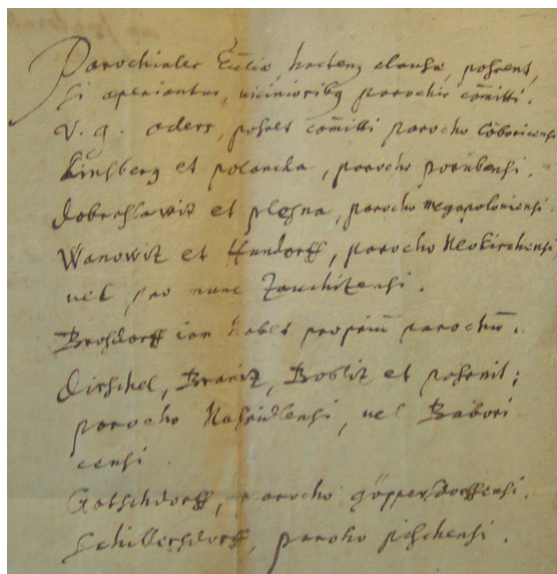 Parochiales Ecclїæ, hactenꝰ clausæ, possent,
si aperiantur, vicinioribꝰ parochis com̄itti.
V. g. oders, posset com̄itti parocho
Kinsberg et polancka, parocho porubensi.
dobroslawitz et plesna, parocho megapoloniensi.
Wanowitz et Hundorff, parocho Neokirchensi
vel pro nunc Zauchitzensi.
Brosdorff iam habet propriū parochū.
dirschel, Branitz, Boblitz et
parocho Nassidlensi, vel Babori
censi.
Gotschdorff, parocho göppersdorffensi.
Schillersdorff, paroho pischensi.